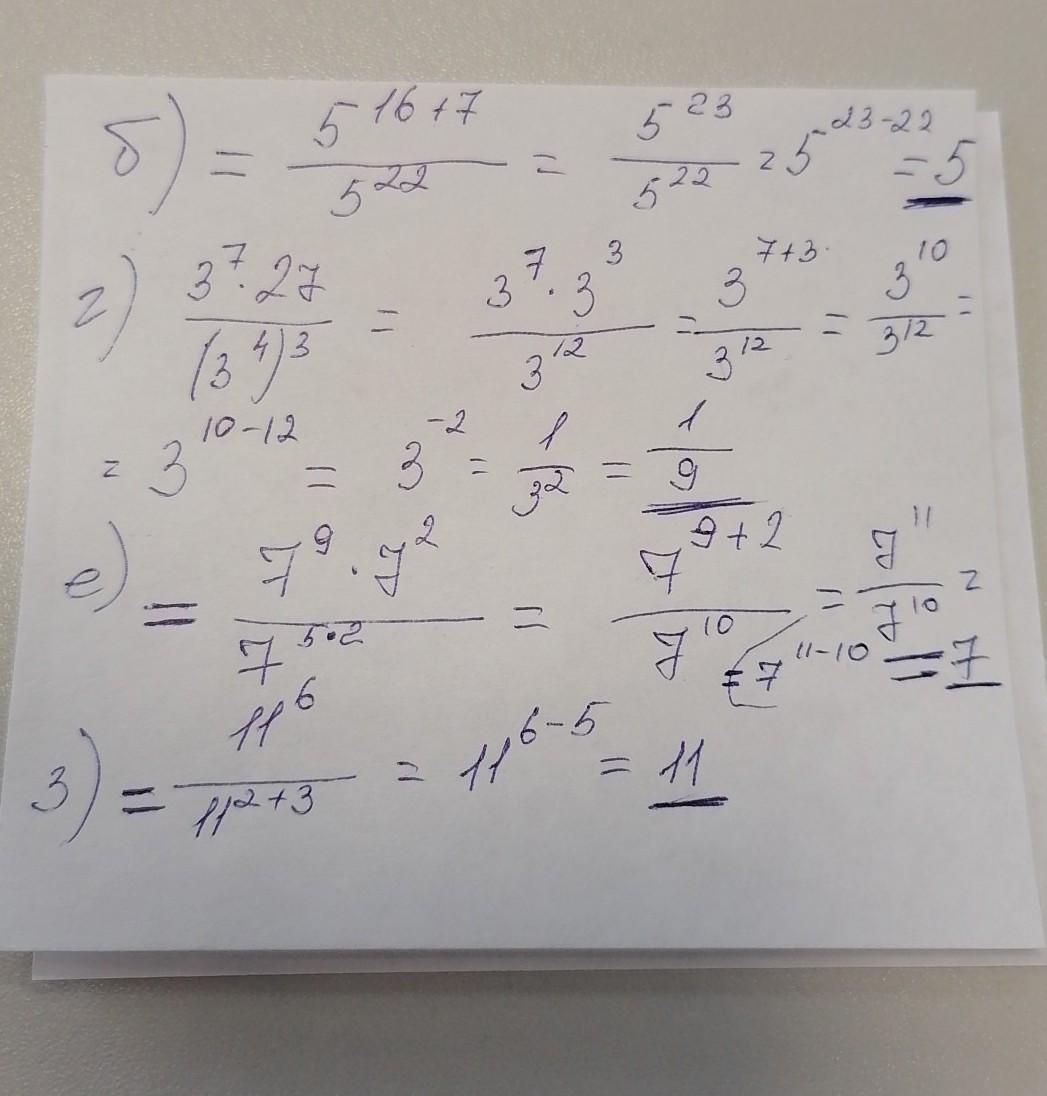 б) = 5^{16+7}/5^{22} = 5^{23}/5^{22} = 5^{23-22} = 5
г) 3^7·27/(3^4)^3 = 3^7·3^3/3^{12} = 3^{7+3}/3^{12} = 3^{10}/3^{12} =
= 3^{10-12} = 3^{-2} = 1/3^2 = 1/9
е) = 7^9·7^2/7^{5·2} = 7^{9+2}/7^{10} = 7^{11}/7^{10} =
= 7^{11-10} = 7
з) = 11^6/11^{2+3} = 11^{6-5} = 11